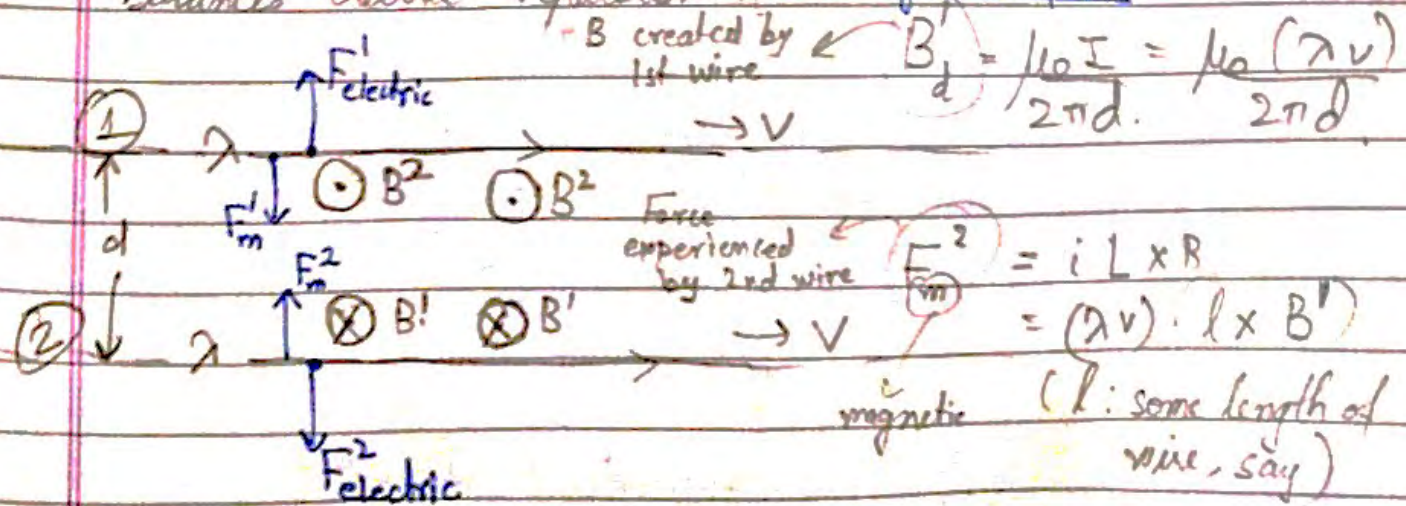 - B created by
1st wire
B'd = μ₀ I / 2πd. = μ₀ (λv) / 2πd
F¹electric
①
λ
→ V
⊙ B² ⊙ B²
F¹m
d
Force
experienced
by 2nd wire
F²m = i L × B
= (λv) · l × B'
F²m
⊗ B' ⊗ B'
②
λ
→ V
magnetic
(l : some length of
wire, say)
F²electric